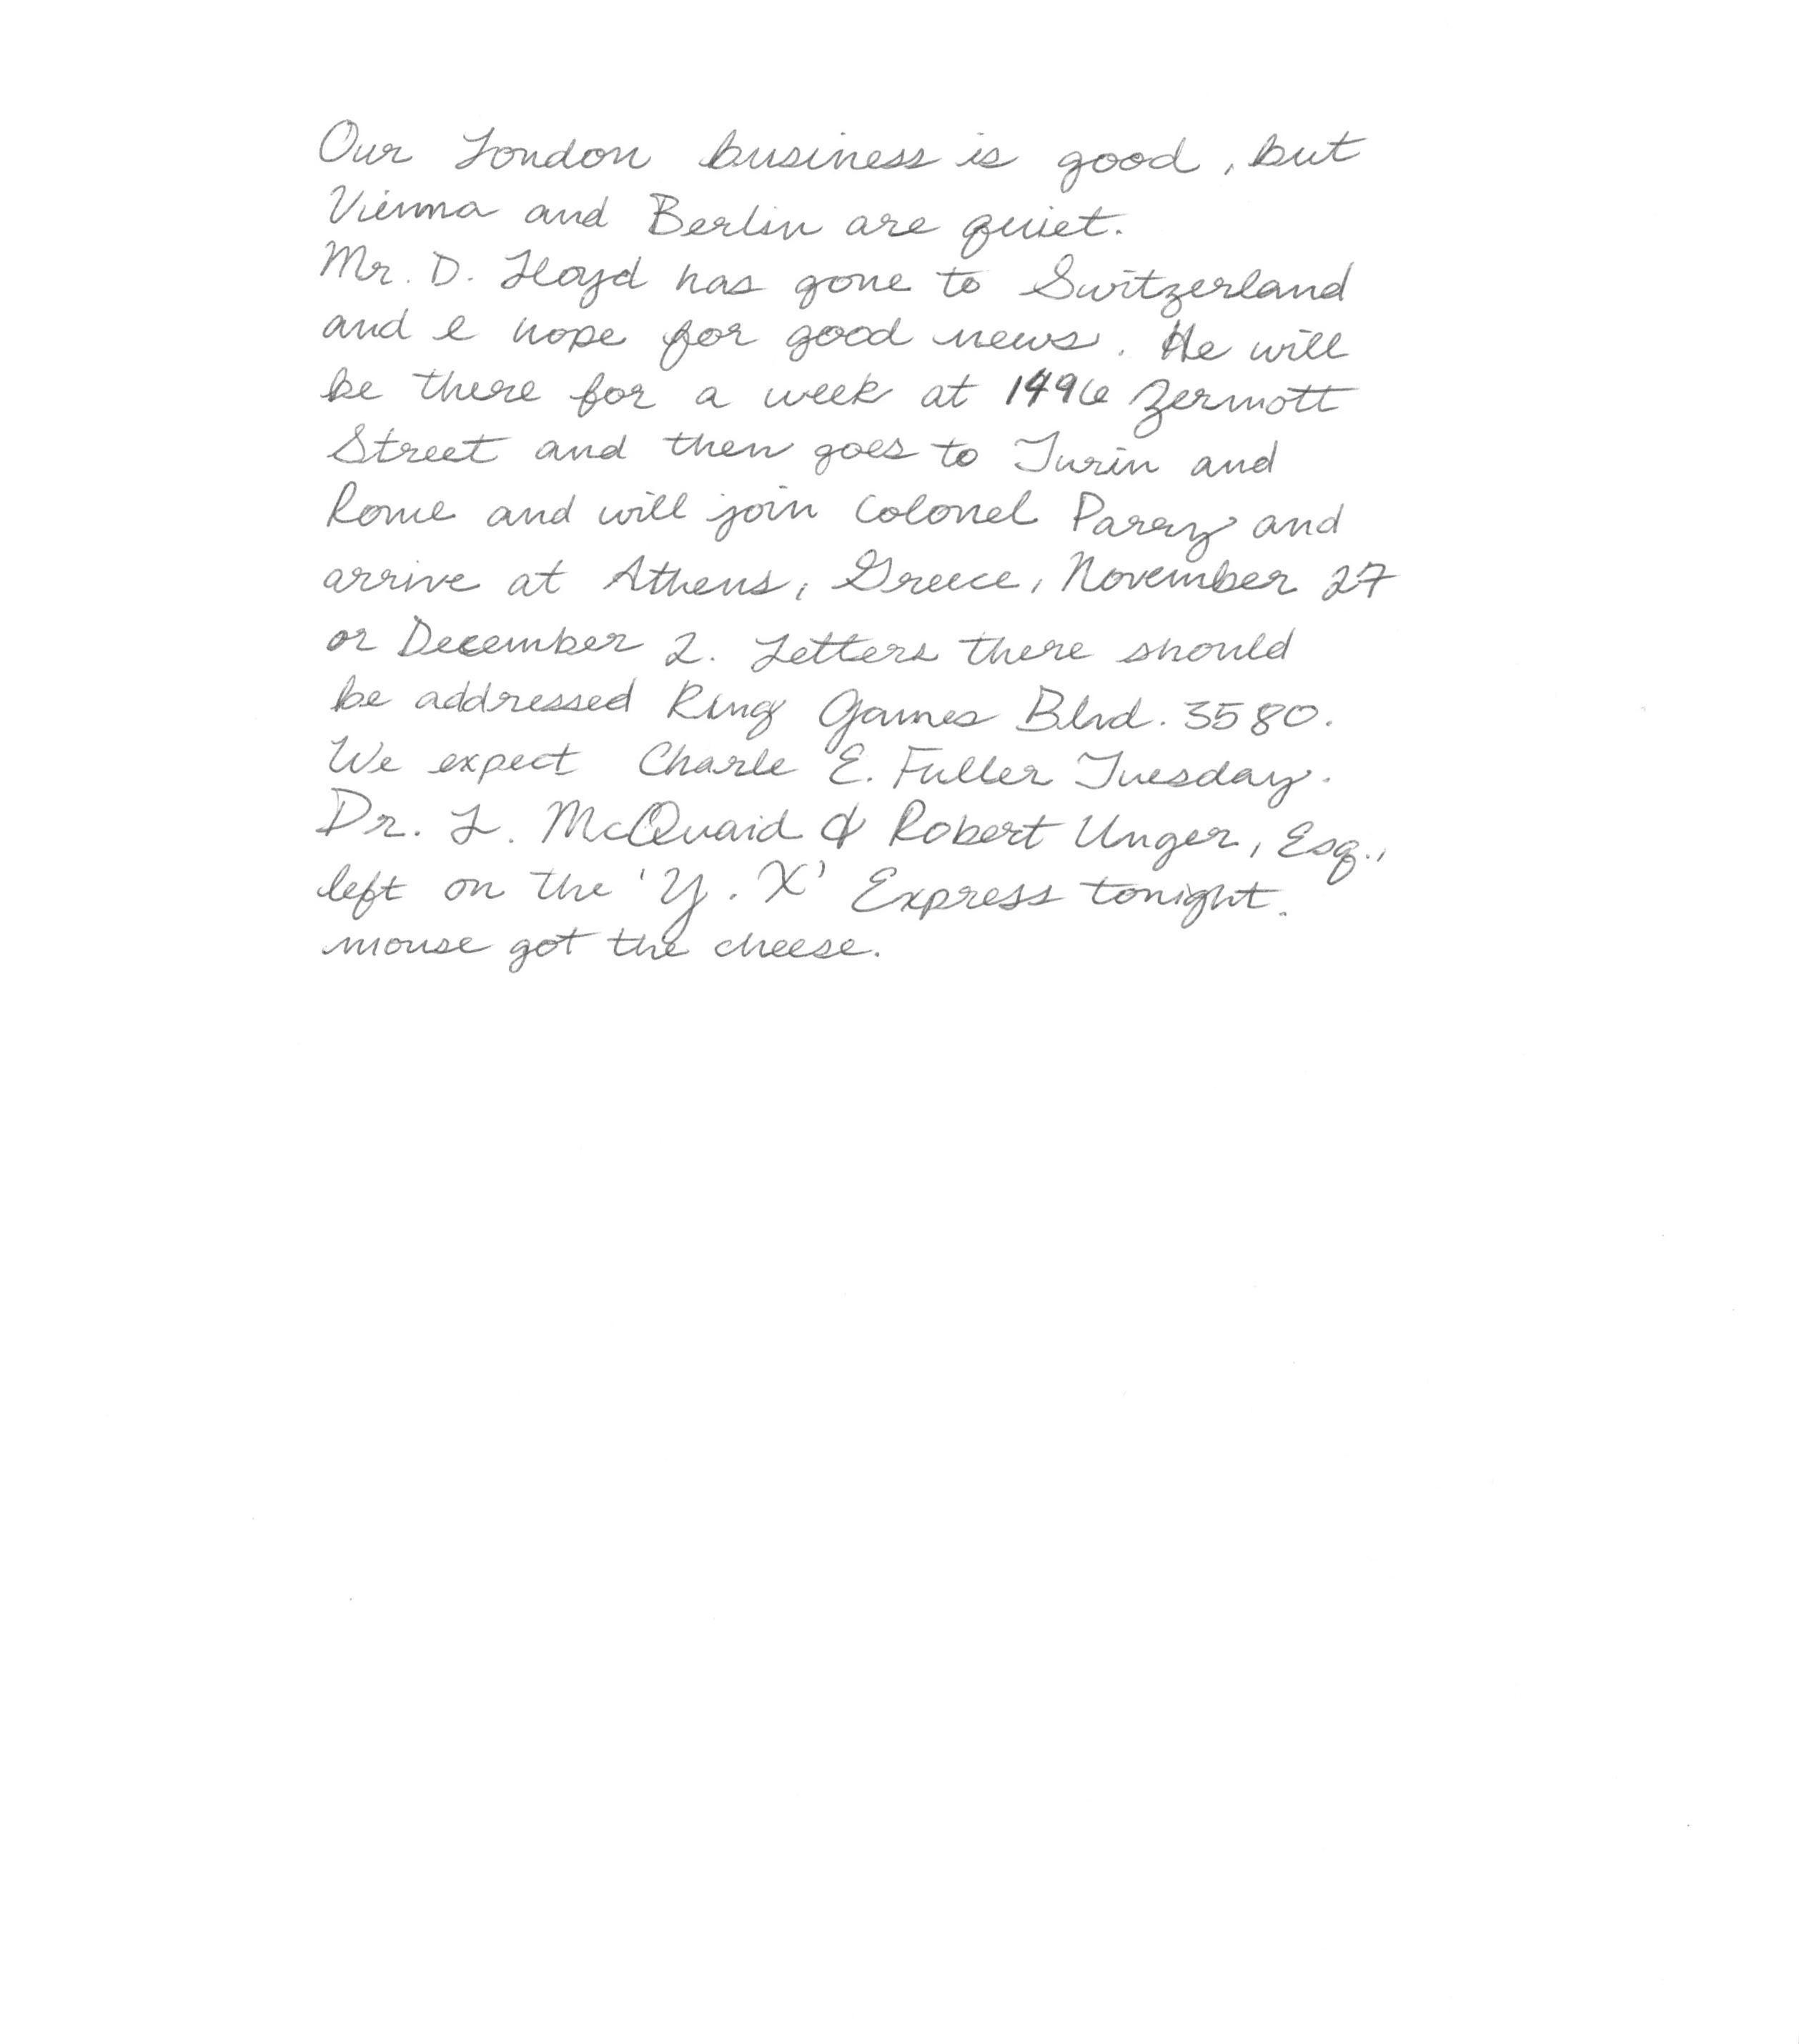 Our London business is good, but
Vienna and Berlin are quiet.
Mr. D. Lloyd has gone to Switzerland
and I hope for good news. He will
be there for a week at 1496 Zermott
Street and then goes to Turin and
Rome and will join Colonel Parry and
arrive at Athens, Greece, November 27
or December 2. Letters there should
be addressed King James Blvd. 3580.
We expect Charle E. Fuller Tuesday.
Dr. L. McQuaid & Robert Unger, Esq.,
left on the 'Y. X' Express tonight.
mouse got the cheese.